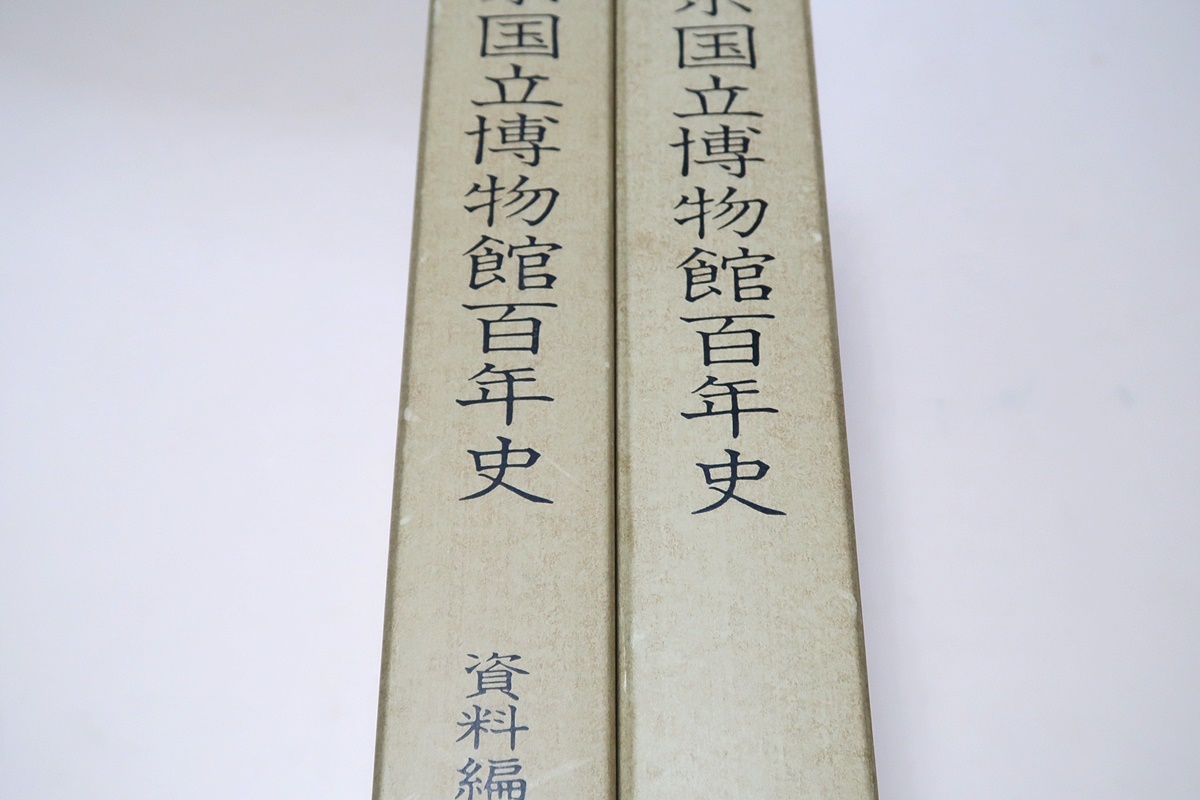 京国立博物館百年史
京国立博物館百年史
資料編